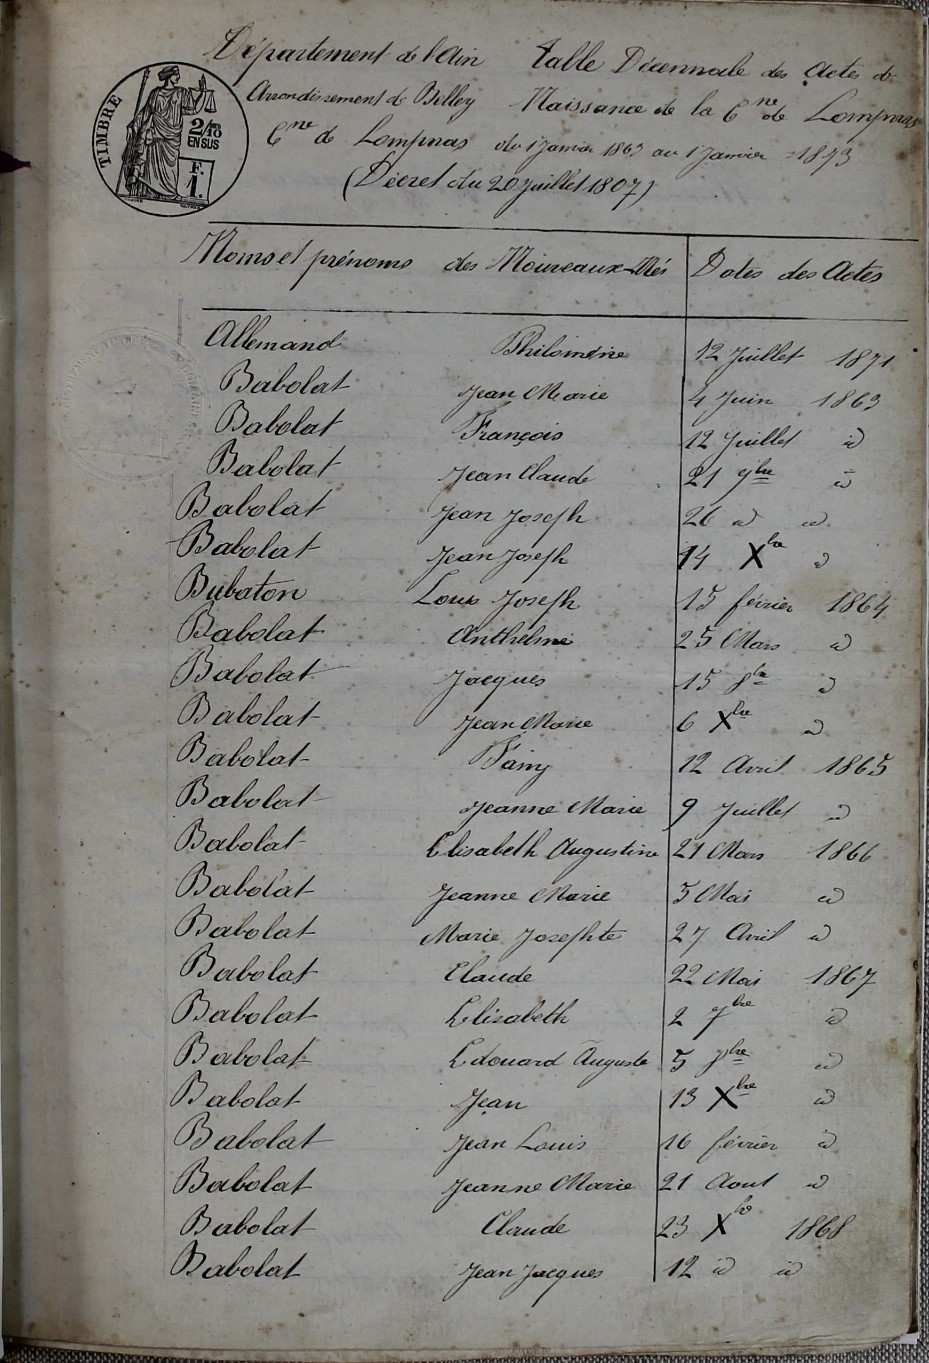 Département de l'Ain Table Décennale des Actes de
Arrondissement de Belley Naissance de la Cne de Lompnas
Cne de Lompnas du 1 Janvier 1863 au 1 Janvier 1873
(Décret du 20 juillet 1807)
TIMBRE
2/10
EN SUS
F.
1.
Noms et prénoms des Nouveaux-Nés Dates des Actes
Allemand Philomène 12 Juillet 1871
Babolat Jean Marie 4 Juin 1863
Babolat François 12 Juillet id
Babolat Jean Claude 21 9bre id
Babolat Jean Joseph 26 id id
Babolat Jean Joseph 14 Xbre id
Bubaton Louis Joseph 15 février 1864
Babolat Anthelme 25 Mars id
Babolat Jacques 15 8bre id
Babolat Jean Marie 6 Xbre id
Babolat Fany 12 Avril 1865
Babolat Jeanne Marie 9 Juillet id
Babolat Elisabeth Augustine 21 Mars 1866
Babolat Jeanne Marie 5 Mai id
Babolat Marie Josephte 27 Avril id
Babolat Claude 22 Mai 1867
Babolat Elisabeth 2 7bre id
Babolat Edouard Auguste 5 8bre id
Babolat Jean 13 Xbre id
Babolat Jean Louis 16 février id
Babolat Jeanne Marie 21 Aout id
Babolat Claude 23 Xbre 1868
Babolat Jean Jacques 12 id id